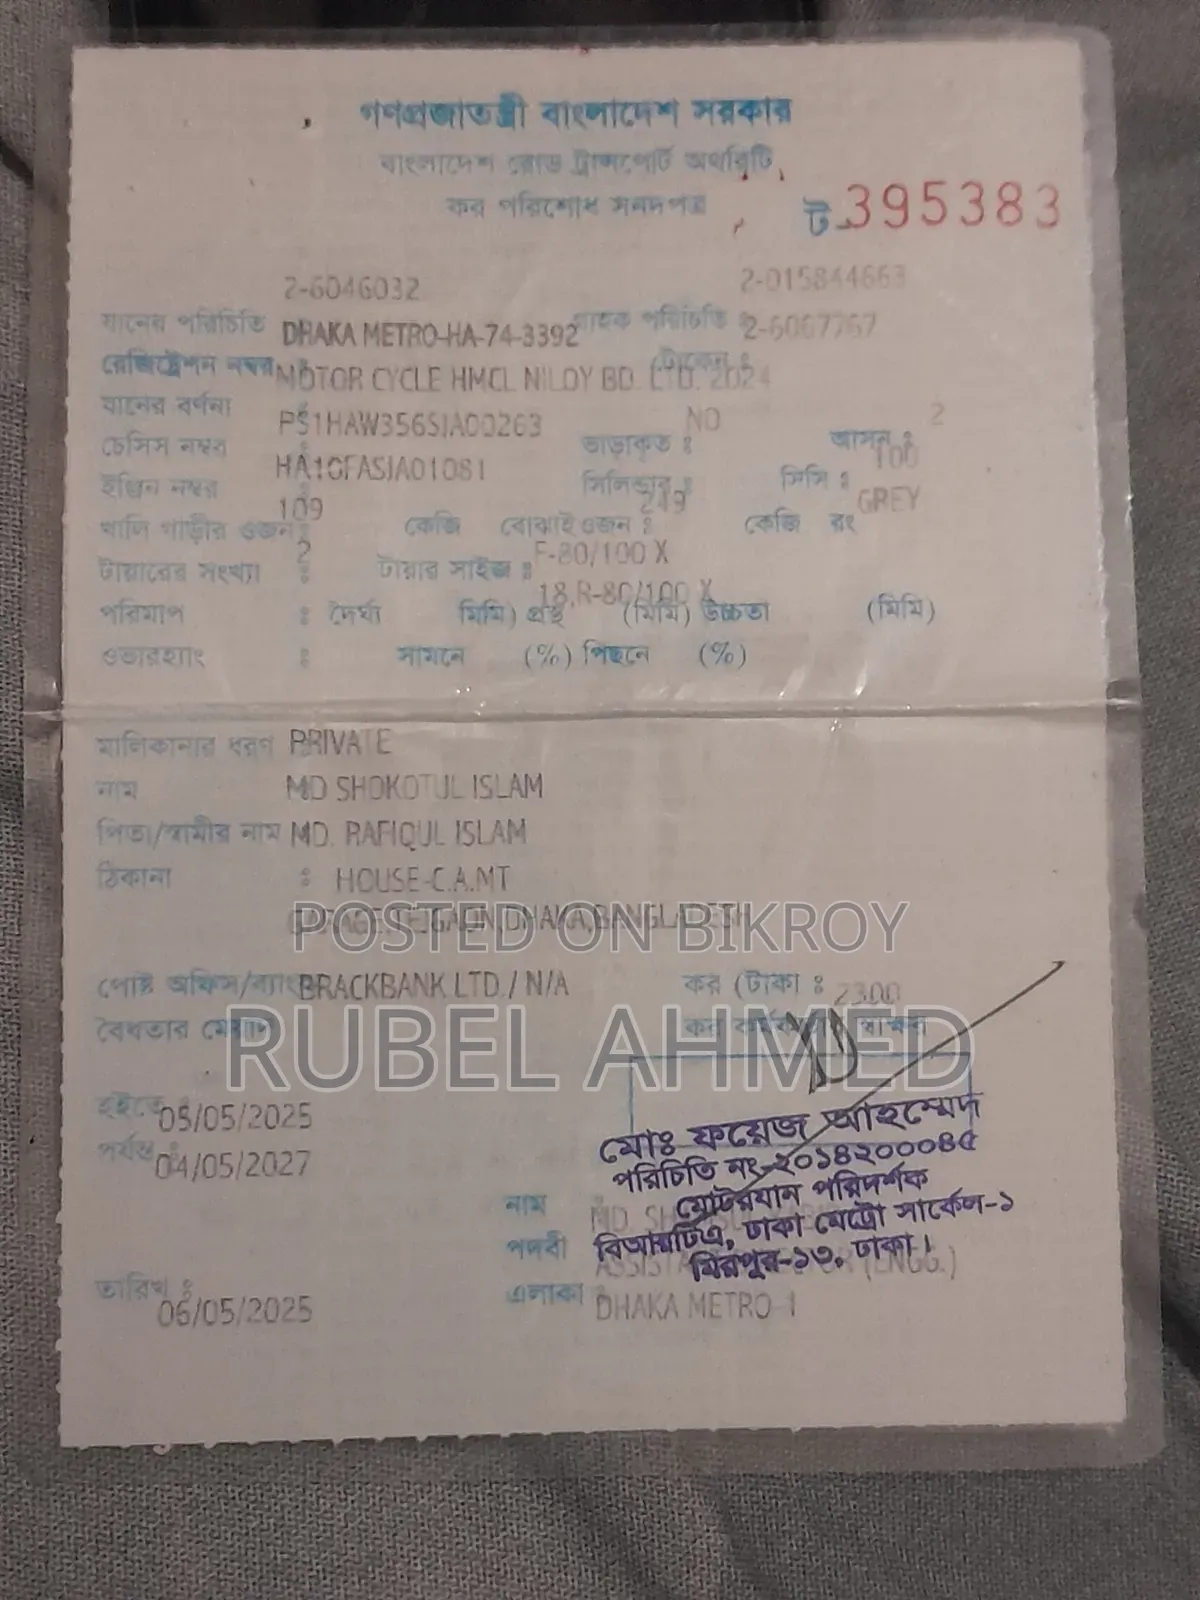 গণপ্রজাতন্ত্রী বাংলাদেশ সরকার
বাংলাদেশ রোড ট্রান্সপোর্ট অথরিটি
কর পরিশোধ সনদপত্র
ট-395383
2-6046032 2-015844663
যানের পরিচিতি গ্রাহক পরিচিতি : 2-6067767
DHAKA METRO-HA-74-3392
রেজিষ্ট্রেশন নম্বর : (টোকেন :
MOTOR CYCLE HMCL NILOY BD. LTD. 2024
যানের বর্ণনা :
PS1HAW356SIA00263 NO 2
চেসিস নম্বর : ভাড়াকৃত : আসন :
HA10FASIA01081 100
ইঞ্জিন নম্বর : সিলিন্ডার : সিসি :
109 249 GREY
খালি গাড়ীর ওজন : কেজি বোঝাই ওজন : কেজি রং
2 F-80/100 X
টায়ারের সংখ্যা : টায়ার সাইজ :
18,R-80/100 X
পরিমাপ : দৈর্ঘ্য মিমি) প্রস্থ (মিমি) উচ্চতা (মিমি)
ওভারহ্যাং : সামনে (%) পিছনে (%)
মালিকানার ধরণ PRIVATE
নাম MD SHOKOTUL ISLAM
পিতা/স্বামীর নাম MD. RAFIQUL ISLAM
ঠিকানা : HOUSE-C.A.MT
GARAGE,TEJGAON,DHAKA,BANGLADESH
POSTED ON BIKROY
পোষ্ট অফিস/ব্যাংক BRACKBANK LTD / N/A কর (টাকা : 2300
বৈধতার মেয়াদ
RUBEL AHMED
হইতে : 05/05/2025
পর্যন্ত : 04/05/2027
মোঃ ফয়েজ আহম্মেদ
পরিচিতি নং-২০১৪২০০০৪৫
মোটরযান পরিদর্শক
বিআরটিএ, ঢাকা মেট্রো সার্কেল-১
মিরপুর-১৩, ঢাকা।
নাম : MD.
পদবী (ENGG.)
তারিখ : 06/05/2025 এলাকা : DHAKA METRO-1